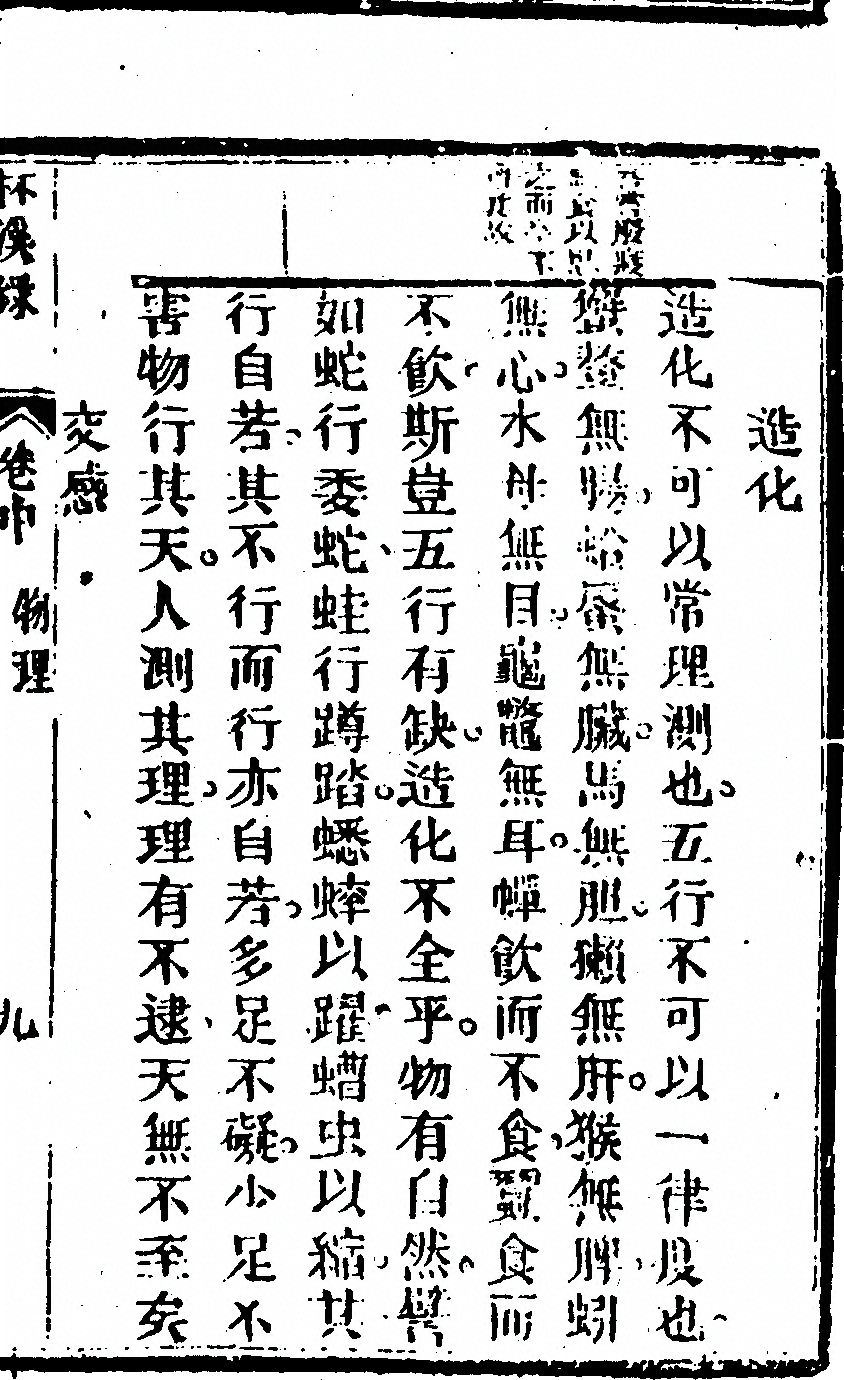 造化
造化不可以常理測也。五行不可以一律也
蟹螯無腸。蛤蜃無臟。馬無胆。獺無肝。猴無脾、蚓
無心。水母無目。龜鱉無耳。蟬飲而不食、蠶食而
不飲。斯豈五行有缺。造化不全乎。物有自然。譬
如蛇行委蛇、蛙行蹲踏。蟋蟀以躍、螬虫以縮。其
行自若。其不行而行亦自若。多足不礙。少足不
害物行其天。人測其理。理有不逮、天無不至矣
交感
卷中 物理 九